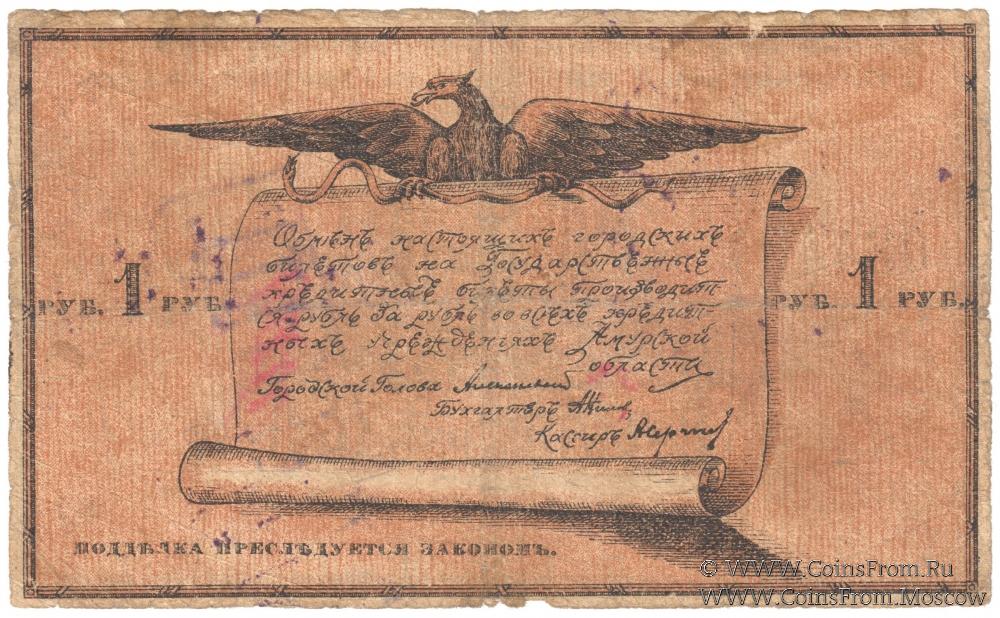 Обмѣнъ настоящихъ городскихъ
билетовъ на Государственные
кредитные билеты производит
ся рубль за рубль во всѣхъ кредит
ныхъ учрежденіяхъ Амурской
области
РУБ. 1 РУБ.
РУБ. 1 РУБ.
Городской Голова
Бухгалтеръ
Кассиръ
ПОДДѢЛКА ПРЕСЛѢДУЕТСЯ ЗАКОНОМЪ.
© WWW.CoinsFrom.Ru
WWW.CoinsFrom.Moscow